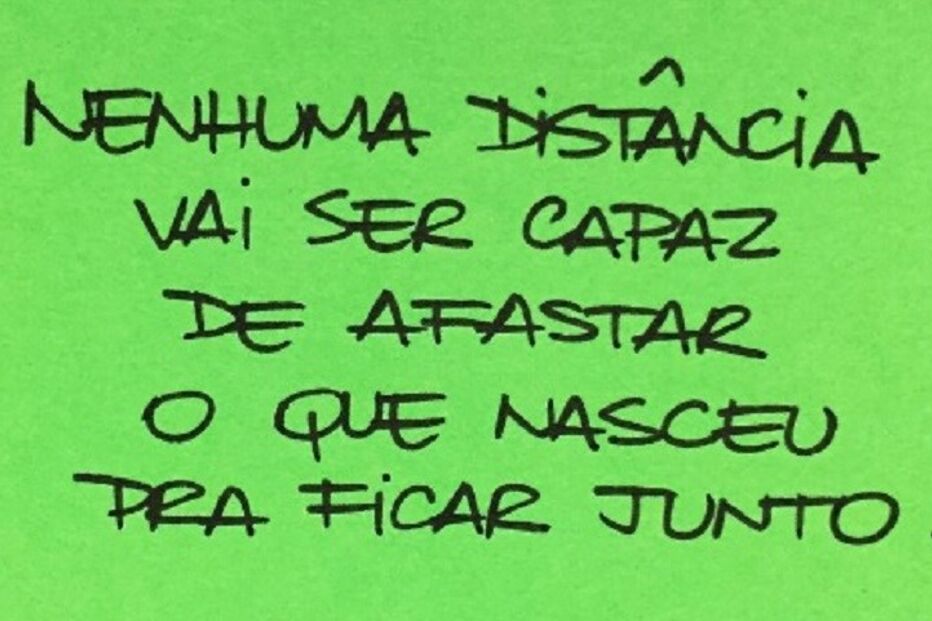 NENHUMA DISTÂNCIA
VAI SER CAPAZ
DE AFASTAR
O QUE NASCEU
PRA FICAR JUNTO.